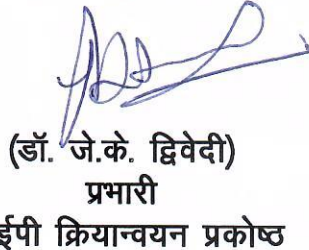 (डॉ. जे.के. द्विवेदी)
प्रभारी
ईपी क्रियान्वयन प्रकोष्ठ